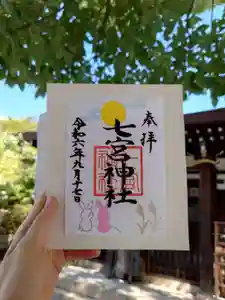 奉拝
七宮神社
令和六年九月十七日